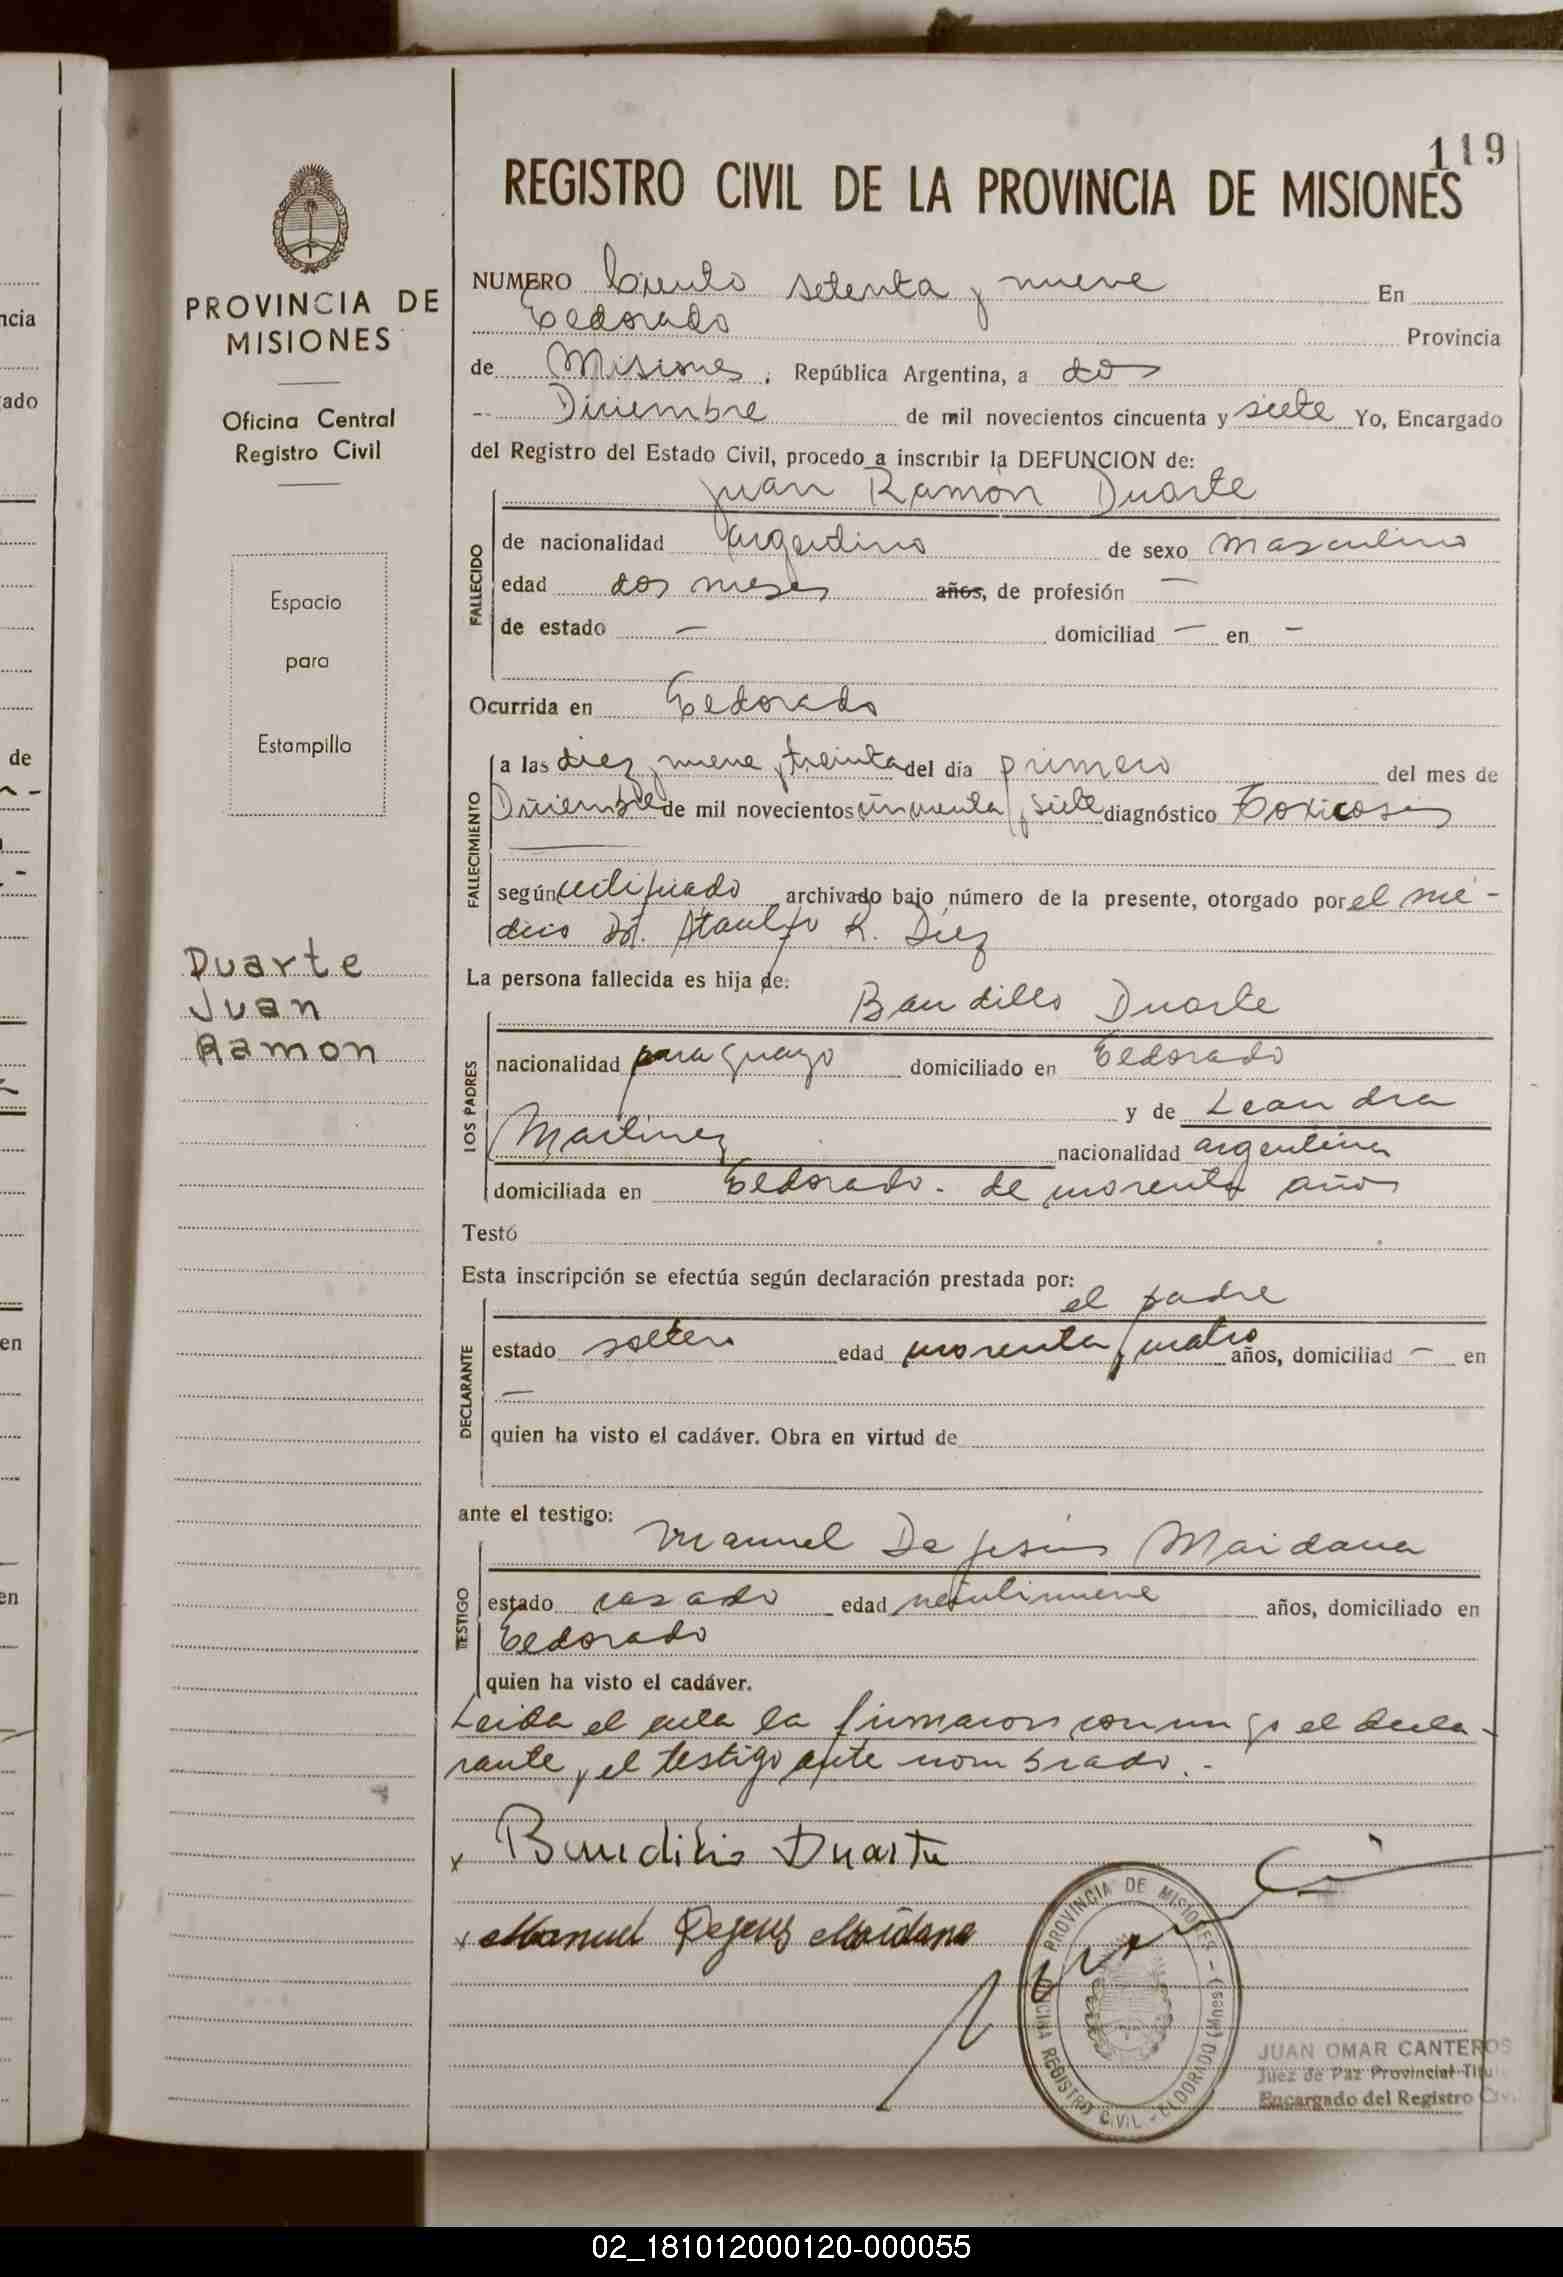 119
REGISTRO CIVIL DE LA PROVINCIA DE MISIONES
NUMERO Ciento setenta y nueve En
Eldorado Provincia
de Misiones, República Argentina, a dos
Diciembre de mil novecientos cincuenta y siete Yo, Encargado
del Registro del Estado Civil, procedo a inscribir la DEFUNCION de:
Juan Ramón Duarte
FALLECIDO
de nacionalidad Argentino de sexo masculino
edad dos meses años, de profesión —
de estado — domiciliad — en —
Ocurrida en Eldorado
FALLECIMIENTO
a las diez y nueve y treinta del día primero del mes de
Diciembre de mil novecientos cincuenta y siete diagnóstico Toxicosis
según certificado archivado bajo número de la presente, otorgado por el mé-
dico Dr. Ataulfo R. Diez
La persona fallecida es hija de:
Baudilio Duarte
LOS PADRES
nacionalidad paraguayo domiciliado en Eldorado
y de Leandra
Martinez nacionalidad argentina
domiciliada en Eldorado - de cuarenta años
Testó
Esta inscripción se efectúa según declaración prestada por:
el padre
DECLARANTE
estado soltero edad cuarenta y cuatro años, domiciliad — en
—
quien ha visto el cadáver. Obra en virtud de
ante el testigo:
Manuel De Jesús Maidana
TESTIGO
estado casado edad veintinueve años, domiciliado en
Eldorado
quien ha visto el cadáver.
Leida el acta la firmaron conmigo el decla-
rante y el testigo ante nombrado.-
x Baudilio Duarte
x Manuel Dejesus Maidana
PROVINCIA DE MISIONES - OFICINA REGISTRO CIVIL - ELDORADO (Mnes.)
JUAN OMAR CANTEROS
Juez de Paz Provincial Titu
Encargado del Registro Civ
PROVINCIA DE
MISIONES
Oficina Central
Registro Civil
Espacio
para
Estampilla
Duarte
Juan
Ramon
ncia
ado
de
en
en
02_181012000120-000055